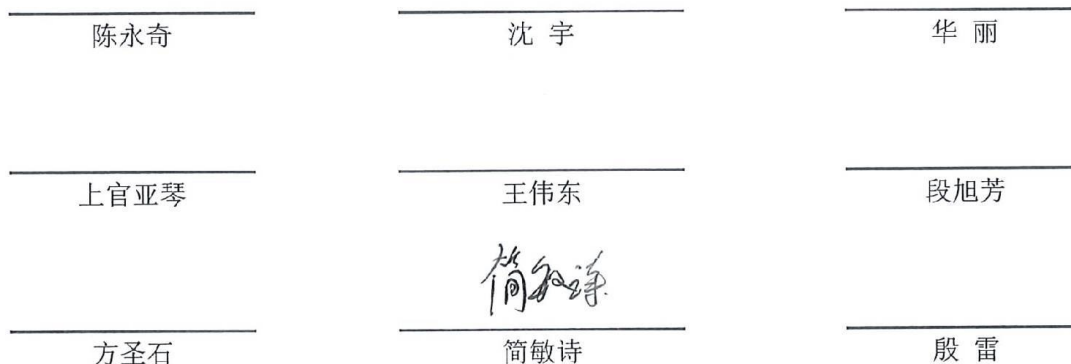 陈永奇 沈 宇 华 丽
上官亚琴 王伟东 段旭芳
简敏诗
方圣石 简敏诗 殷 雷